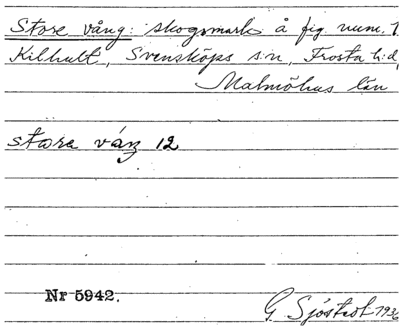 Store vång: skogsmark å fig num. 1
Kilhult, Svensköps s:n, Frosta h:d,
Malmöhus län
stora váŋ 12
Nr 5942.
G. Sjöstedt 1936